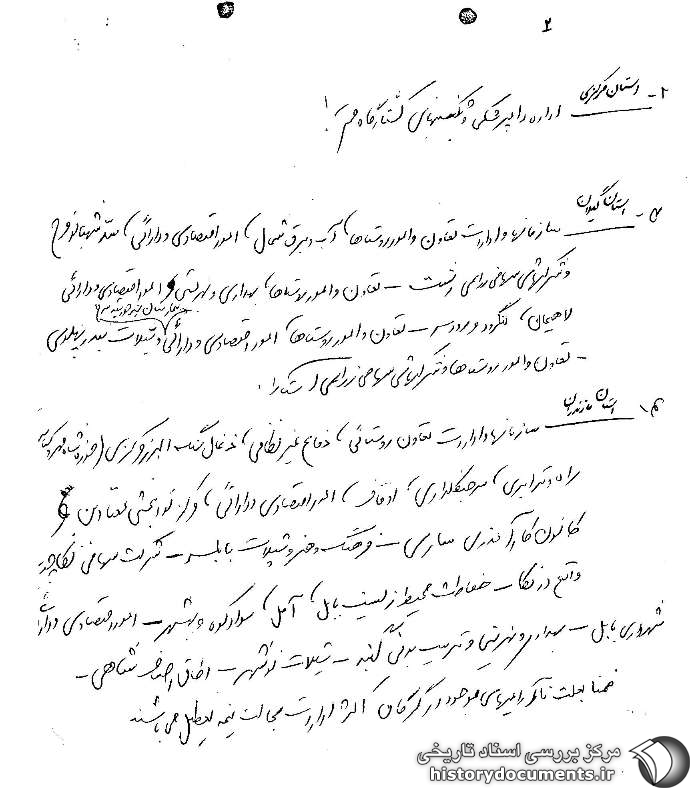 ۲
۲- استان مرکزی اداره دامپزشکی و تکنسینهای کشتارگاه قم!
۳- استان گیلان سازمانها و ادارات تعاون و امور روستاها، آب و برق شمال، امور اقتصادی و دارائی، سد شهبانو فرح
و شرکتهای سهامی زراعی رشت - تعاون و امور روستاها، بهداری و بهزیستی و امور اقتصادی و دارائی
بیمارستان
لاهیجان، لنگرود و رودسر - تعاون و امور روستاها، امور اقتصادی و دارائی و شیلات بندر پهلوی
- تعاون و امور روستاها و شرکتهای سهامی زراعی آستارا.
۴- استان مازندران سازمانها و ادارات تعاون روستائی، دفاع غیرنظامی، ذغال سنگ البرز مرکزی
راه و ترابری، سرجنگلداری، اوقاف، امور اقتصادی و دارائی، مرکز توانبخشی معتادین و
کانون کارآموزی ساری - فرهنگ و هنر و شیلات بابلسر - شرکت سهامی نکاچوب
واقع در نکا - حفاظت محیط زیست بابل، آمل، سوادکوه و بهشهر - امور اقتصادی و دارائی
شهرداری بابل - بهداری و بهزیستی و تربیت بدنی گنبد - شیلات نوشهر - اطاق اصناف شاهی -
ضمنا بعلت ناآرامیهای موجود در گرگان اکثر ادارات بحالت نیمه تعطیل می باشند
مرکز بررسی اسناد تاریخی
historydocuments.ir